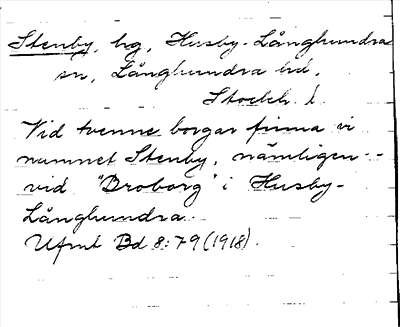 Stenby, hg, Husby-Långhundra
sn, Långhundra hd,
Stockh. l.
Vid tvenne borgar finna vi
namnet Stenby, nämligen --
vid "Broborg" i Husby-
Långhundra
Ufmt Bd 8:79 (1918).